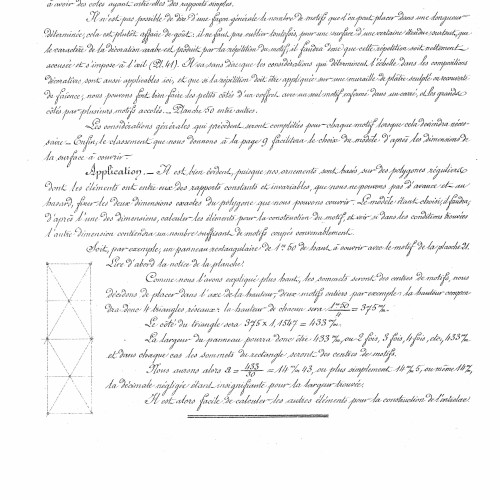 à avoir des côtés ayant entre elles des rapports simples.
Il n'est pas possible de dire d'une façon générale le nombre de motifs que l'on peut placer dans une longueur
déterminée; cela est plutôt affaire de goût: il ne faut pas oublier toutefois, pour une surface d'une certaine étendue surtout, que
le caractère de la décoration arabe est produit par la répétition du motif, il faudra donc que cette répétition soit nettement
accusée et s'impose à l'œil (Pl. 41). Il va sans dire que les considérations qui déterminent l'échelle dans les compositions
décoratives sont aussi applicables ici, et que si la répétition doit être appliquée sur une muraille de plâtre sculpté ou recouverte
de faïence, nous pourrons fort bien faire les petits côtés d'un coffret avec un seul motif enfermé dans un carré, et les grands
côtés par plusieurs motifs accolés. Planche 50 entre autres.
Les considérations générales qui précèdent seront complétées pour chaque motif lorsque cela deviendra néces-
saire. Enfin, le classement que nous donnons à la page 9 facilitera le choix du modèle d'après les dimensions de
la surface à couvrir.
Application. Il est bien évident, puisque nos ornements sont basés sur des polygones réguliers
dont les éléments ont entre eux des rapports constants et invariables, que nous ne pouvons pas d'avance et au
hasard, fixer les deux dimensions exactes du polygone que nous pouvons couvrir. Le modèle étant choisi, il faudra,
d'après l'une des dimensions, calculer les éléments pour la construction du motif, et voir si dans les conditions trouvées
l'autre dimension contiendra un nombre suffisant de motifs coupés convenablement.
Soit, par exemple, un panneau rectangulaire de 1m50 de haut, à couvrir avec le motif de la planche 21.
Lire d'abord la notice de la planche.
Comme nous l'avons expliqué plus haut, les sommets seront des centres de motifs, nous
décidons de placer dans l'axe de la hauteur, deux motifs entiers par exemple: la hauteur compren-
dra donc 4 triangles réseaux: la hauteur de chacun sera 1m50/4 = 375 m/m.
Le côté du triangle sera 375 x 1,1547 = 433 m/m.
La largeur du panneau pourra donc être 433 m/m, ou 2 fois, 3 fois, 4 fois, etc, 433 m/m
et dans chaque cas les sommets du rectangle seront des centres de motifs.
Nous aurons alors a = 433/30 = 14 m/m 43, ou plus simplement 14 m/m 5, ou même 14 m/m,
la décimale négligée étant insignifiante pour la largeur trouvée.
Il est alors facile de calculer les autres éléments pour la construction de l'entrelacs.